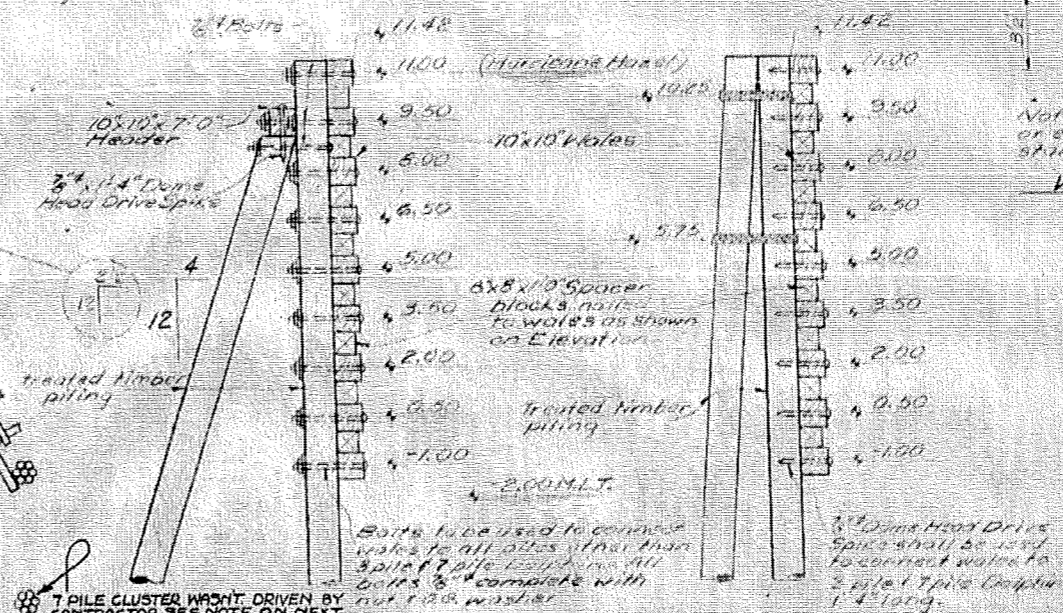 Bolts
11.42
11.00 (Hurricane Hazel)
9.50
10"x10"x7'0"
Header
10"x10" Wales
8.00
7/8"ø x 1'4" Dome
Head Drive Spike
6.50
5.00
4
12
12
8"x8"x1'0" Spacer
blocks nailed
to wales as shown
on Elevation
3.50
2.00
treated timber
piling
0.50
-1.00
-2.00 M.L.T.
Bolts to be used to connect
wales to all piles other than
3 pile & 7 pile
bolts complete with
nut & washer
7 PILE CLUSTER WASN'T DRIVEN BY
CONTRACTOR SEE NOTE ON NEXT
11.42
11.00
10.25
9.50
8.00
6.50
5.75
5.00
3.50
2.00
Treated timber
piling
0.50
-1.00
Dome Head Drive
Spike shall be used
to connect wales to
3 pile & 7 pile Dolphin
1'4" long.
32